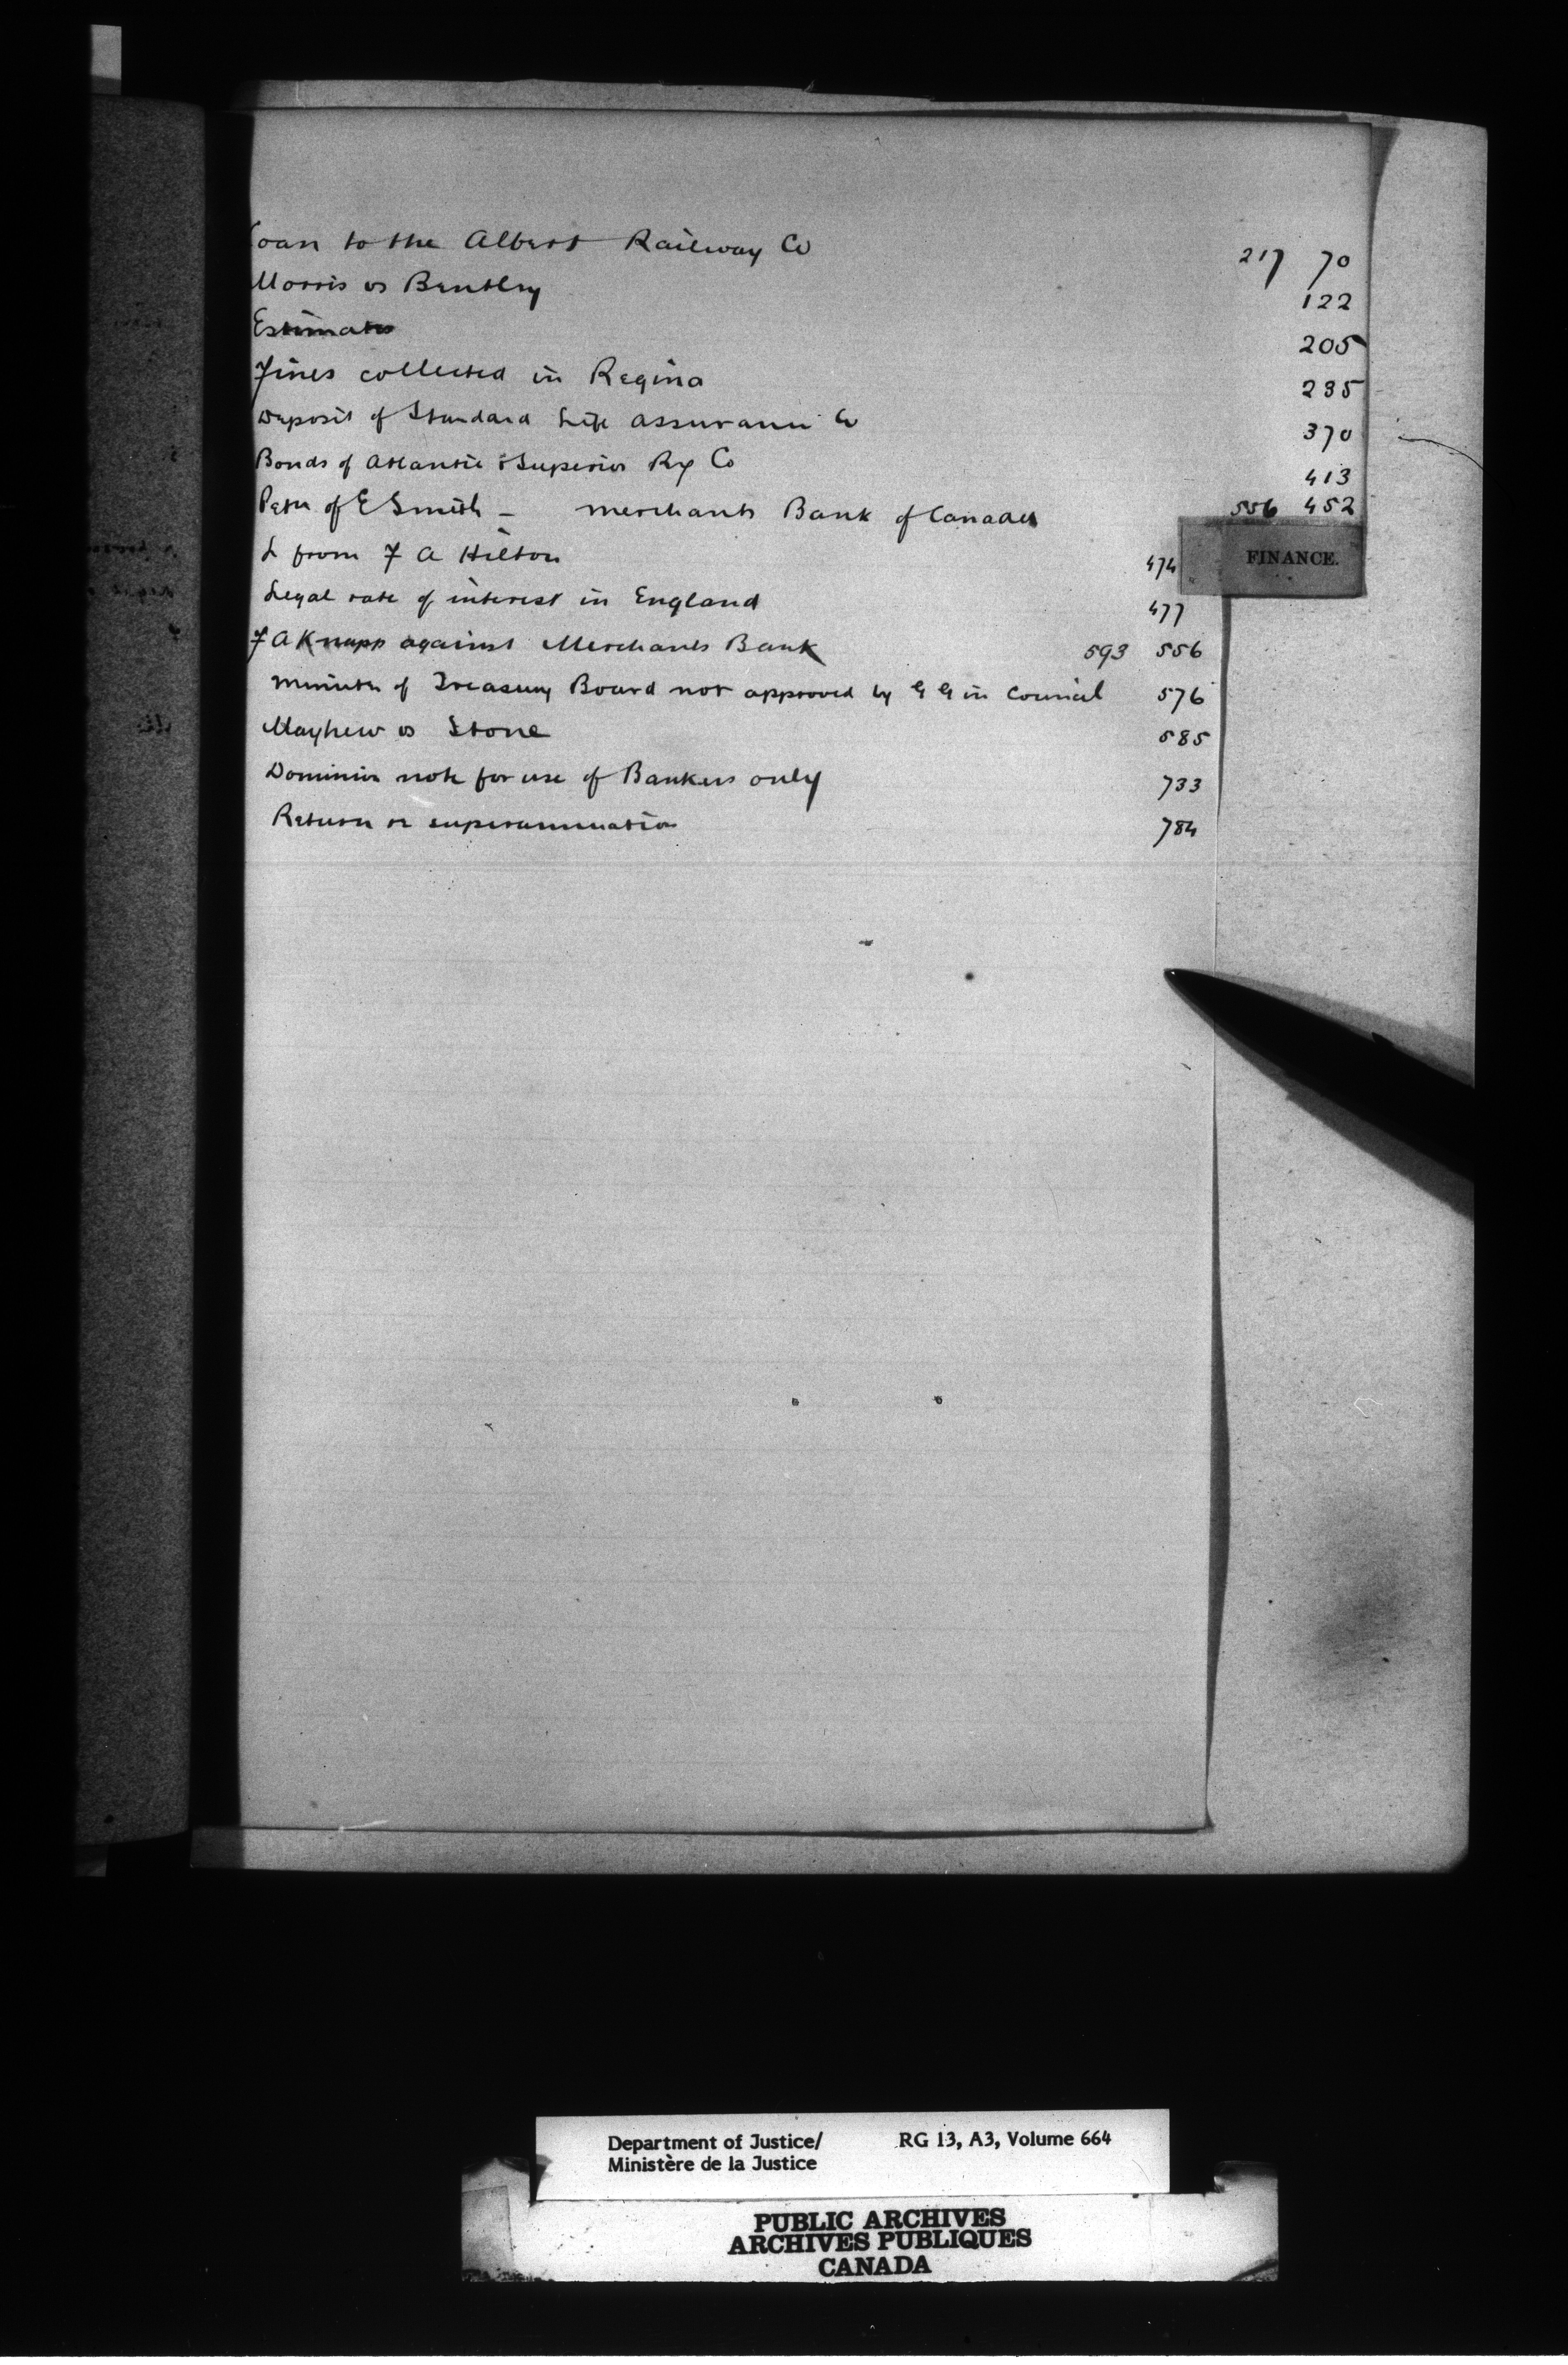 Loan to the Albert Railway Co 217 70
Morris vs Bentley 122
Estimates 205
Fines collected in Regina 235
Deposit of Standard Life Assurance Co 370
Bonds of Atlantic & Superior Ry Co 413
Petn of E Smith – Merchants Bank of Canada 556 452
L from F A Hilton 474
FINANCE.
Legal rate of interest in England 477
F A Knapp against Merchants Bank 593 556
Minutes of Treasury Board not approved by G G in Council 576
Mayhew vs Stone 585
Dominion note for use of Bankers only 733
Return re superannuation 784
Department of Justice/ RG 13, A3, Volume 664
Ministère de la Justice
PUBLIC ARCHIVES
ARCHIVES PUBLIQUES
CANADA